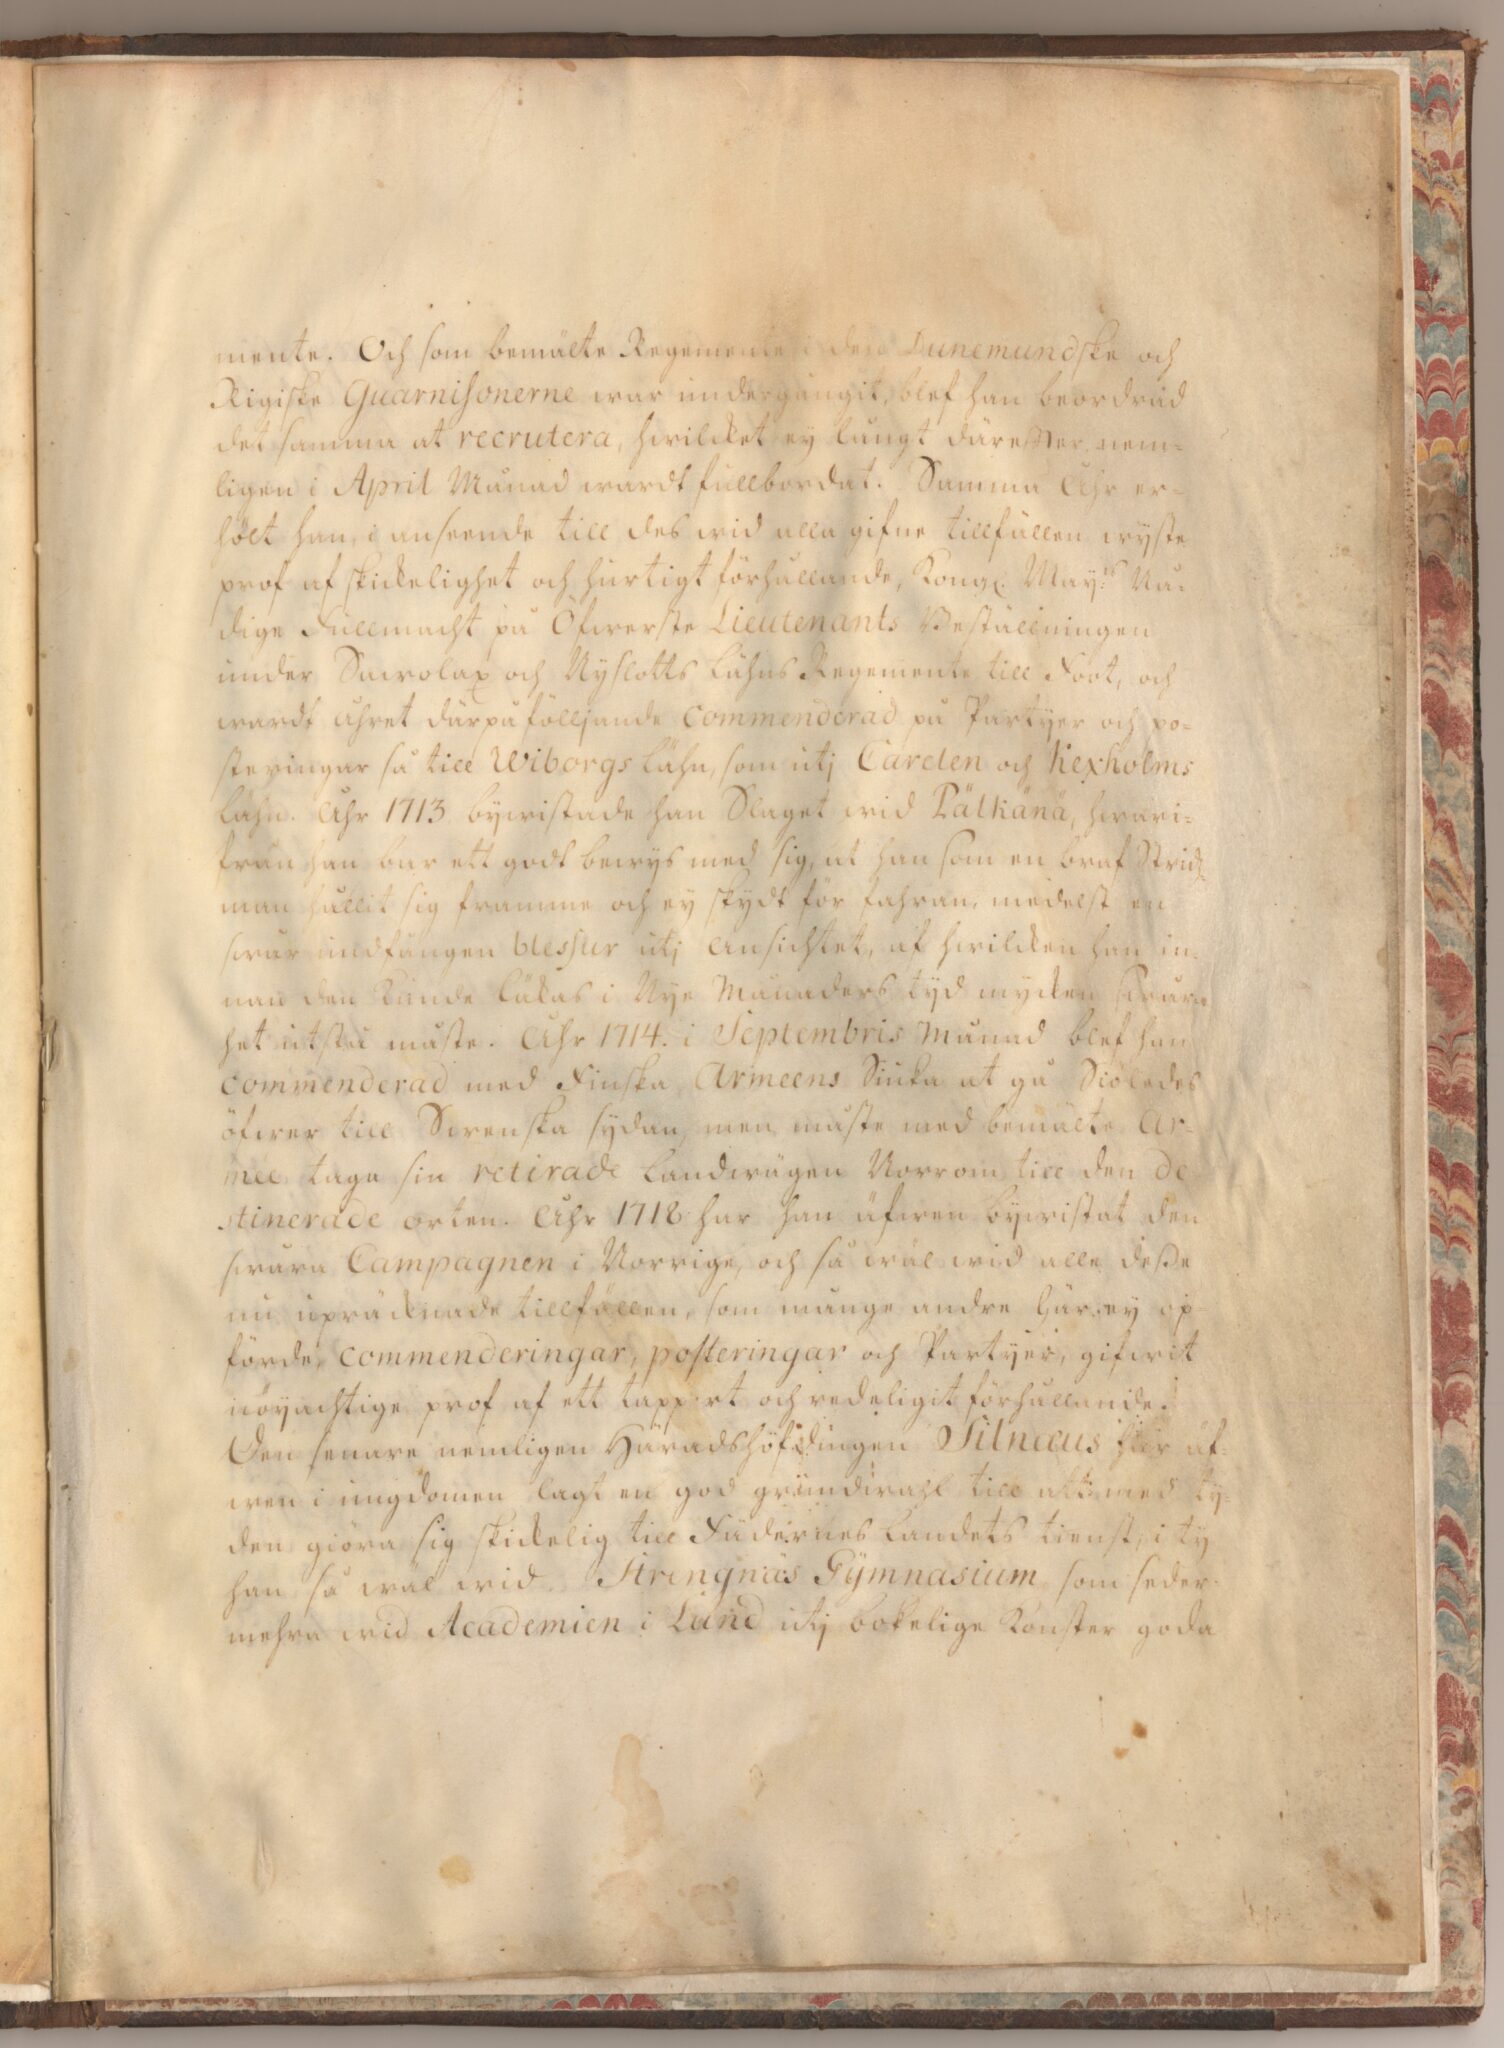 mente. Och som bemälte Regemente i de Dunemundske och
Rigiske Guarnisonerne war undergångit, blef han beordrad
det samma at recrutera, hwilcket ey långt därefter, nem-
ligen i April Månad wardt fullbordat. Samma Åhr er-
hölt han, i anseende till des wid alla gifne tillfällen wyste
prof af skickelighet och hurtigt förhållande, Kongl. May:ts Nå-
dige Fullmacht på Öfwerste Lieutenants Beställningen
under Sawolax och Nyslotts Lähns Regemente till Foot, och
wardt Åhret därpåfölljande commenderad på Partyer och po-
steringar så till Wiborgs Lähn, som utj Carelen och Kexholms
Lähn. Åhr 1713 bywistade han Slaget wid Pälkänä, hwari-
från han bar ett godt bewys med sig, at han som en braf Stridz-
man hållit sig framme och ey skydt för fahran, medelst en
swår undfången blessur utj Ansichtet, af hwilcken han in-
nan den kunde läkas i Nye Månaders tyd mycken swår-
het utstå måste. Åhr 1714. i Septembris Månad blef han
commenderad med Finska Armeens Siuka at gå Siöledes
öfwer till Swenska sydan, men måste med bemälte Ar-
mée taga sin retirade Landwägen Norrom till den de-
stinerade orten. Åhr 1718 har han äfwen bywistat den
swåra Campagnen i Norrige, och så wäl wid alle desse
nu upräcknade tillfällen, som månge andre här ey op-
förde, commenderingar, posteringar och Partyer, gifwit
nöyachtige prof af ett tappert och redeligit förhållande.
Den senare nemligen Häradshöfdingen Silnæus har äf-
wen i ungdomen lagt en god grundwahl till att med ty-
den giöra sig skickelig till Fädernes Landets tienst, i ty
han så wäl wid Strengnäs Gymnasium som seder-
mehra wid Academien i Lund utj bokelige Konster goda